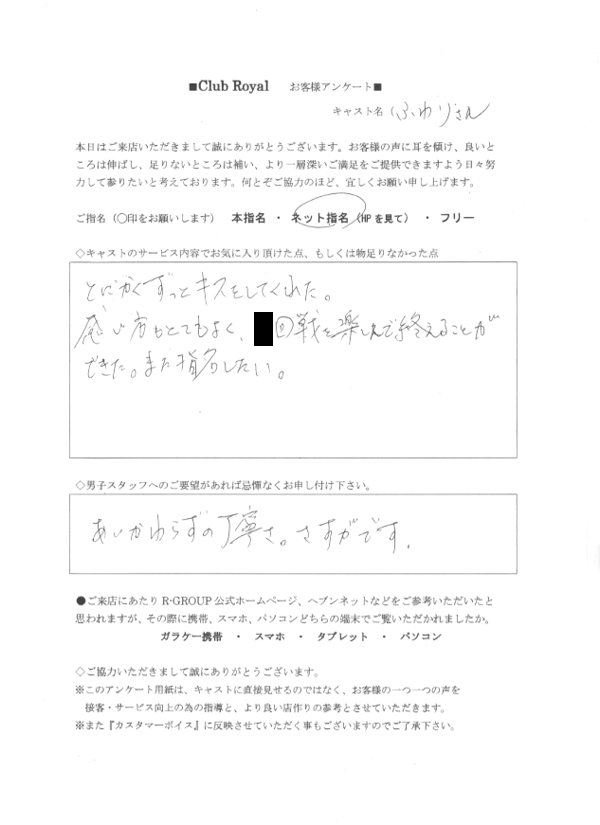 ■Club Royal お客様アンケート■
キャスト名 ふわりさん
本日はご来店いただきまして誠にありがとうございます。お客様の声に耳を傾け、良いと
ころは伸ばし、足りないところは補い、より一層深いご満足をご提供できますよう日々努
力して参りたいと考えております。何とぞご協力のほど、宜しくお願い申し上げます。
ご指名（○印をお願いします） 本指名 ・ ネット指名（HPを見て） ・ フリー
◇キャストのサービス内容でお気に入り頂けた点、もしくは物足りなかった点
とにかくずっとキスをしてくれた。
感じ方もとてもよく、回戦を楽しんで終えることが
できた。また指名したい。
◇男子スタッフへのご要望があれば忌憚なくお申し付け下さい。
あいかわらずの丁寧さ。さすがです.
●ご来店にあたり R-GROUP公式ホームページ、ヘブンネットなどをご参考いただいたと
思われますが、その際に携帯、スマホ、パソコンどちらの端末でご覧いただかれましたか。
ガラケー携帯 ・ スマホ ・ タブレット ・ パソコン
◇ご協力いただきまして誠にありがとうございます。
※このアンケート用紙は、キャストに直接見せるのではなく、お客様の一つ一つの声を
接客・サービス向上の為の指導と、より良い店作りの参考とさせていただきます。
※また『カスタマーボイス』に反映させていただく事もございますのでご了承下さい。